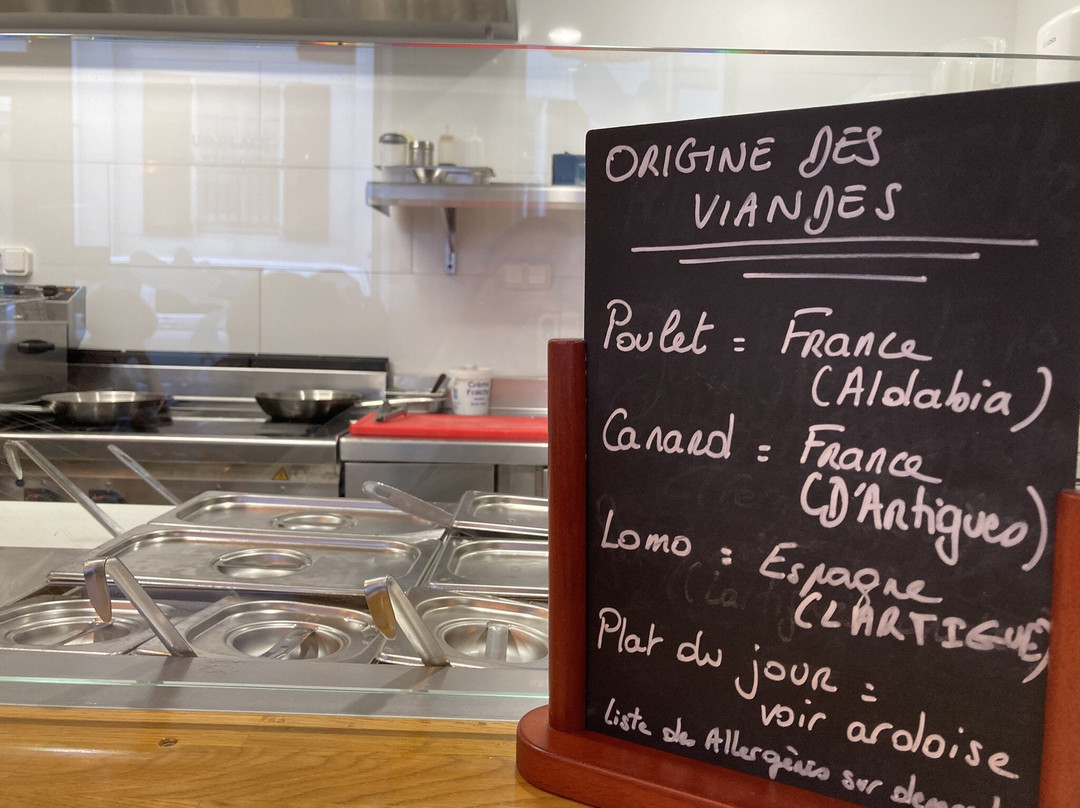 ORIGINE DES
VIANDES
Poulet = France
(Aldabia)
Canard = France
(D'Artigues)
Lomo : Espagne
(LARTIGUE)
Plat du jour =
voir ardoise
Liste des Allergènes sur
Crème
Fraîche